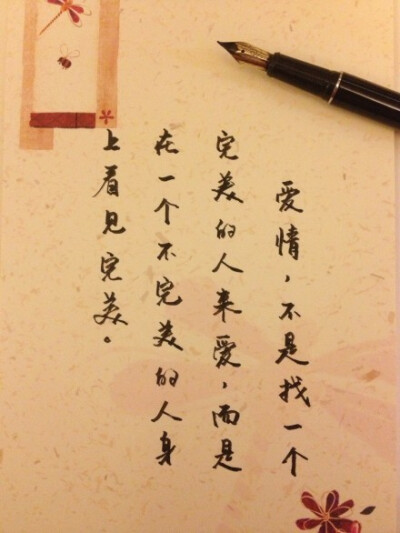 爱情，不是找一个
完美的人来爱，而是
在一个不完美的人身
上看见完美。